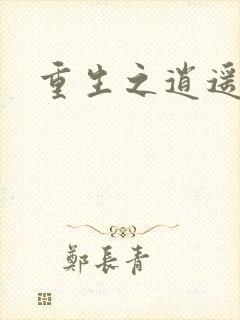 重生之逍遥
鄭長青